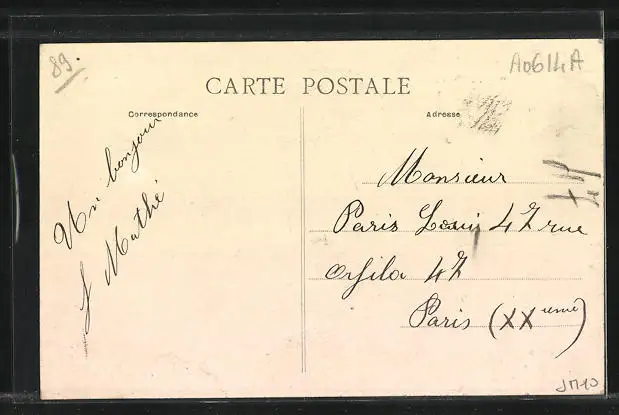 89.
A0614A
CARTE POSTALE
Correspondance
Adresse
Un bonjour
J Mathé
Monsieur
Paris Louis 47 rue
Orfila 47
Paris (XXeme)